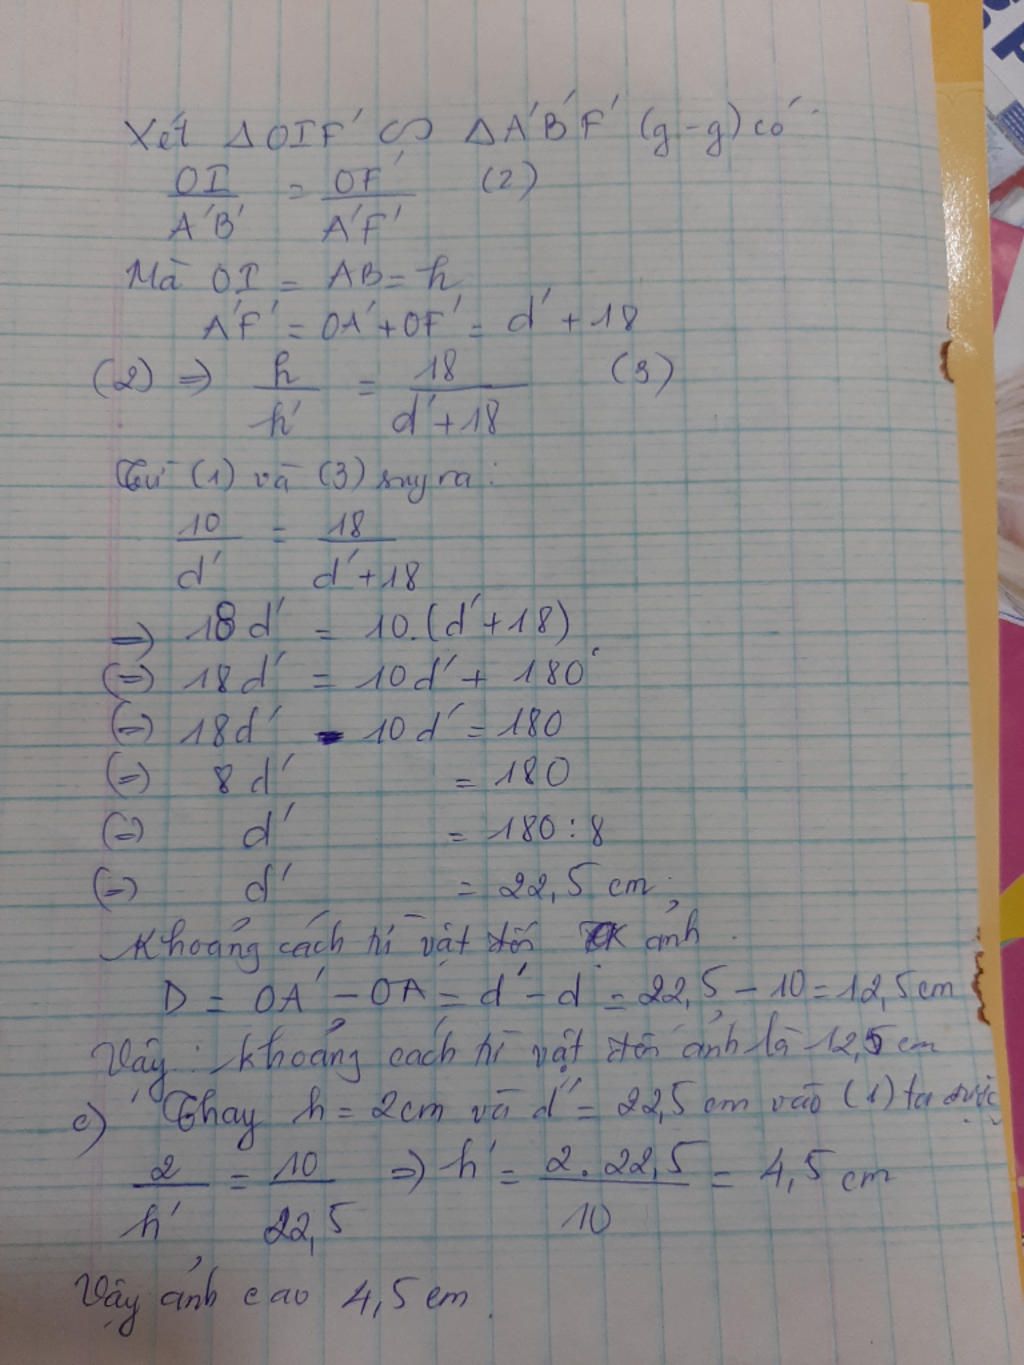 Xét ΔOIF' ∽ ΔA'B'F' (g-g) có
OI/A'B' = OF'/A'F' (2)
Mà OI = AB = h
A'F' = OA' + OF' = d' + 18
(2) ⇒ h/h' = 18/d'+18 (3)
Từ (1) và (3) suy ra:
10/d' = 18/d'+18
⇒ 18d' = 10.(d'+18)
(=) 18d' = 10d' + 180
(=) 18d' - 10d' = 180
(=) 8d' = 180
(=) d' = 180:8
(=) d' = 22,5 cm.
Khoảng cách từ vật đến ảnh.
D = OA' - OA = d' - d = 22,5 - 10 = 12,5 cm
Vậy: khoảng cách từ vật đến ảnh là 12,5 cm
c) Thay h = 2cm và d' = 22,5 cm vào (1) ta được
2/h' = 10/22,5 ⇒ h' = 2.22,5/10 = 4,5 cm
Vậy ảnh cao 4,5 cm.